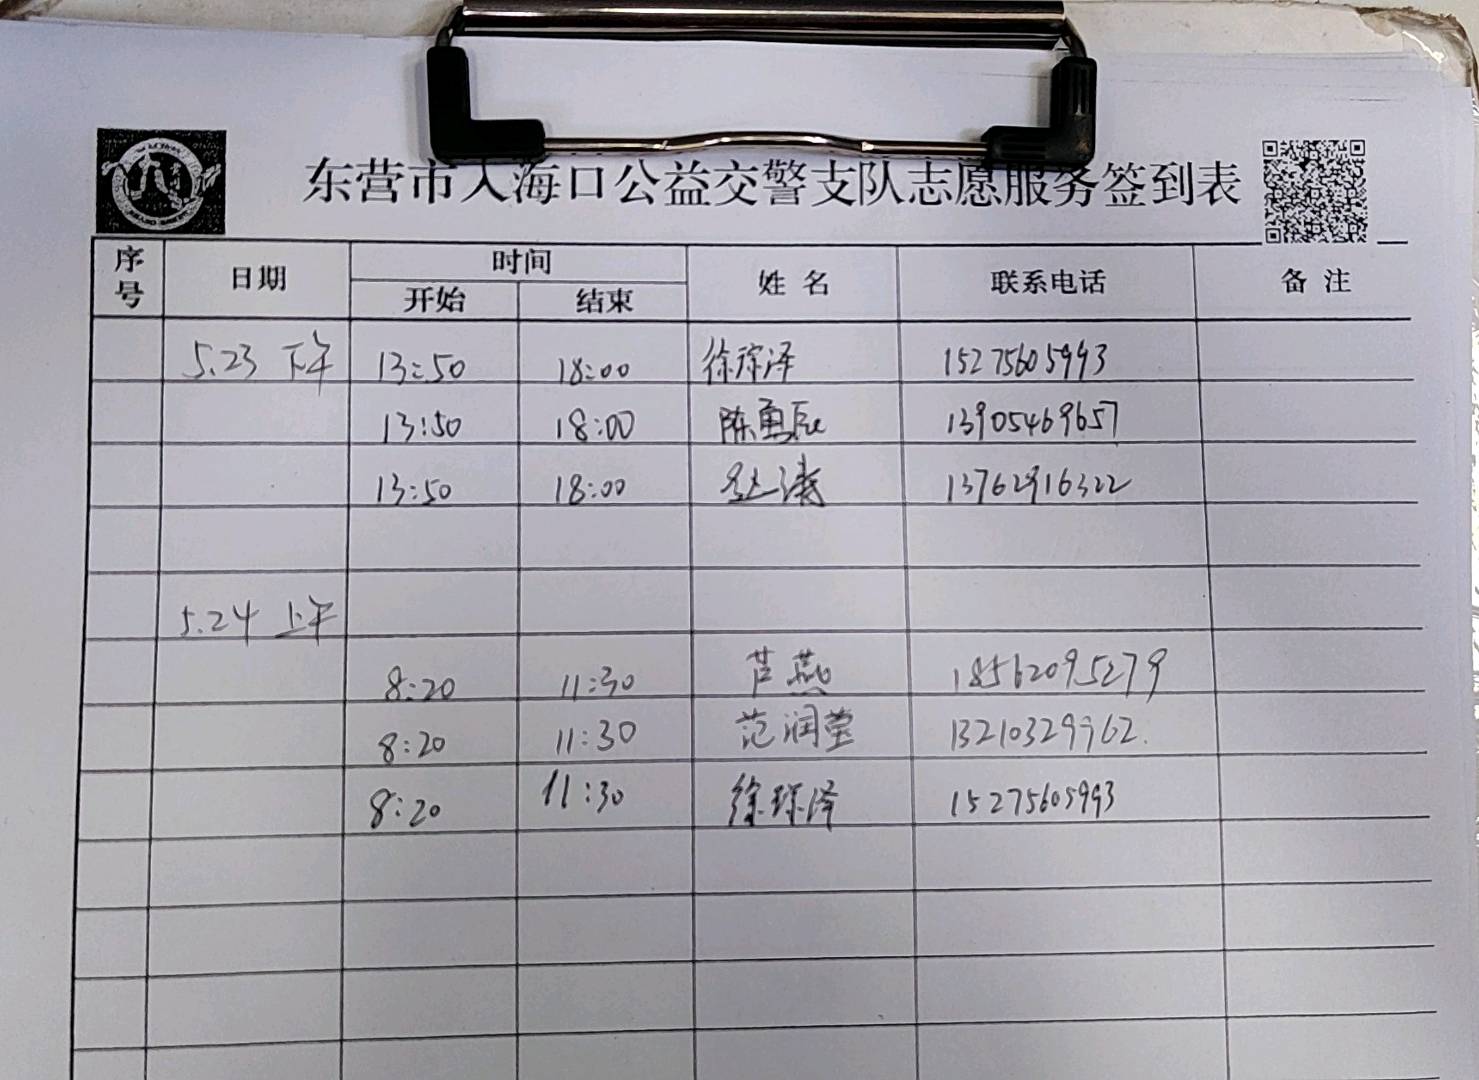 东营市入海口公益交警支队志愿服务签到表
序号 日期 时间 姓名 联系电话 备注
开始 结束
5.23 下午 13:50 18:00 徐琮泽 15275605993
13:50 18:00 陈勇辰 13905469657
13:50 18:00 赵涛 13762916322
5.24 上午
8:20 11:30 芦燕 18562095279
8:20 11:30 范润莹 13210329962
8:20 11:30 徐琮泽 15275605993